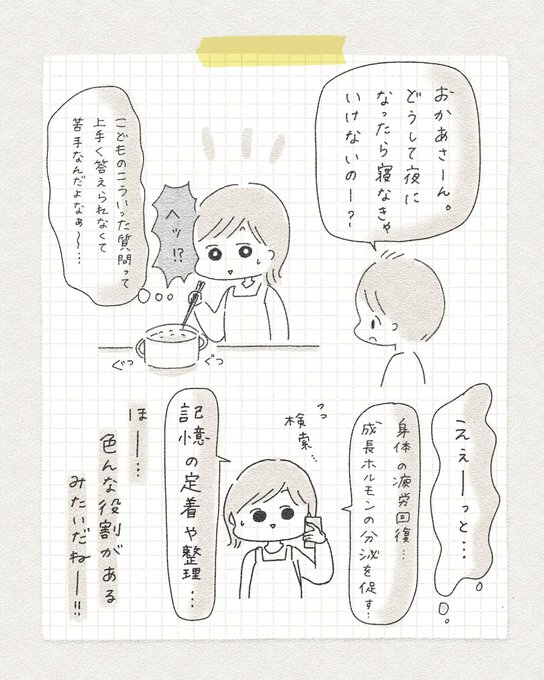 おかあさーん。
どうして夜に
なったら寝なきゃ
いけないのー?
ヘッ!?
こどものこういった質問って
上手く答えられなくて
苦手なんだよなぁ〜…
ぐっ
ぐっ
えぇーっと…
身体の疲労回復…
成長ホルモンの分泌を促す…
検索…
記憶の定着や整理…
ほーー…
色んな役割がある
みたいだねーー!!